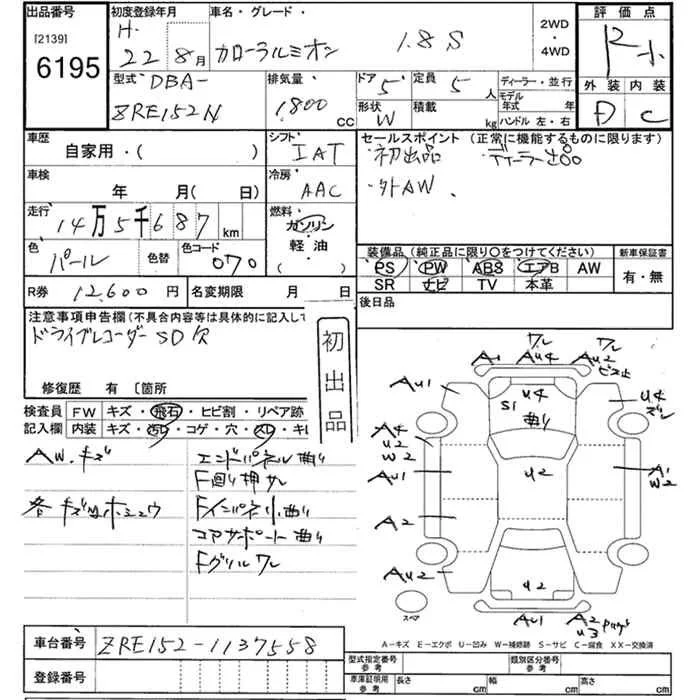 出品番号
[2139]
6195
初度登録年月
H.
22 8月
車名・グレード
カローラルミオン 1.8 S
2WD
・
4WD
評価点
R小
外装 内装
D C
型式 DBA-
ZRE152N
排気量
1,800 CC
ドア 5
定員 5 人
形状 W
積載 kg
ディーラー・並行
モデル
年式 年
ハンドル 左・右
車歴
自家用・( )
シフト
IAT
セールスポイント (正常に機能するものに限ります)
初出品
外AW、
車検
年 月(日)
冷房
AAC
走行
14万5千687 km
燃料
ガソリン
・
軽油
( )
色
パール
色替
色コード
070
装備品(純正品に限り○をつけてください)
PS PW ABS エアB AW
SR ナビ TV 本革
新車保証書
有・無
R券 12,600円
名変期限 月 日
後日品
注意事項申告欄(不具合内容等は具体的に記入して
ドライブレコーダー SD欠
修復歴 有 〔箇所
初出品
検査員
記入欄
FW キズ・飛石・ヒビ割・リペア跡
内装 キズ・汚レ・コゲ・穴・スレ・キレ
AW.キズ
各キズ凹ホシュウ
エンドパネル曲り
F廻り押サレ
Fインパネ小曲り
コアサポート曲り
Fグリルワレ
ワレ
A1 AU4
ワレ
AU2
ビス止
AU1
U4
S1
曲り
U4
ズレ
A4
U2
W2
AU1
U2
A1
W2
A2
AU2
U2
AU1
A2
U3
スペア
A-キズ E-エクボ U-凹み W-補修跡 S-サビ C-腐食 XX-交換済
車台番号 ZRE152-1137558
登録番号
型式指定番号
参考
類別区分番号
参考
車庫証明用
参考
長さ cm
幅 cm
高さ cm